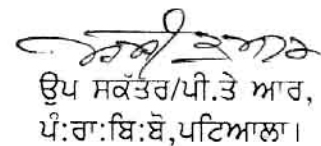 ਉਪ ਸਕੱਤਰ/ਪੀ.ਤੇ ਆਰ,
ਪੰ:ਰਾ:ਬਿ:ਬੋ,ਪਟਿਆਲਾ।